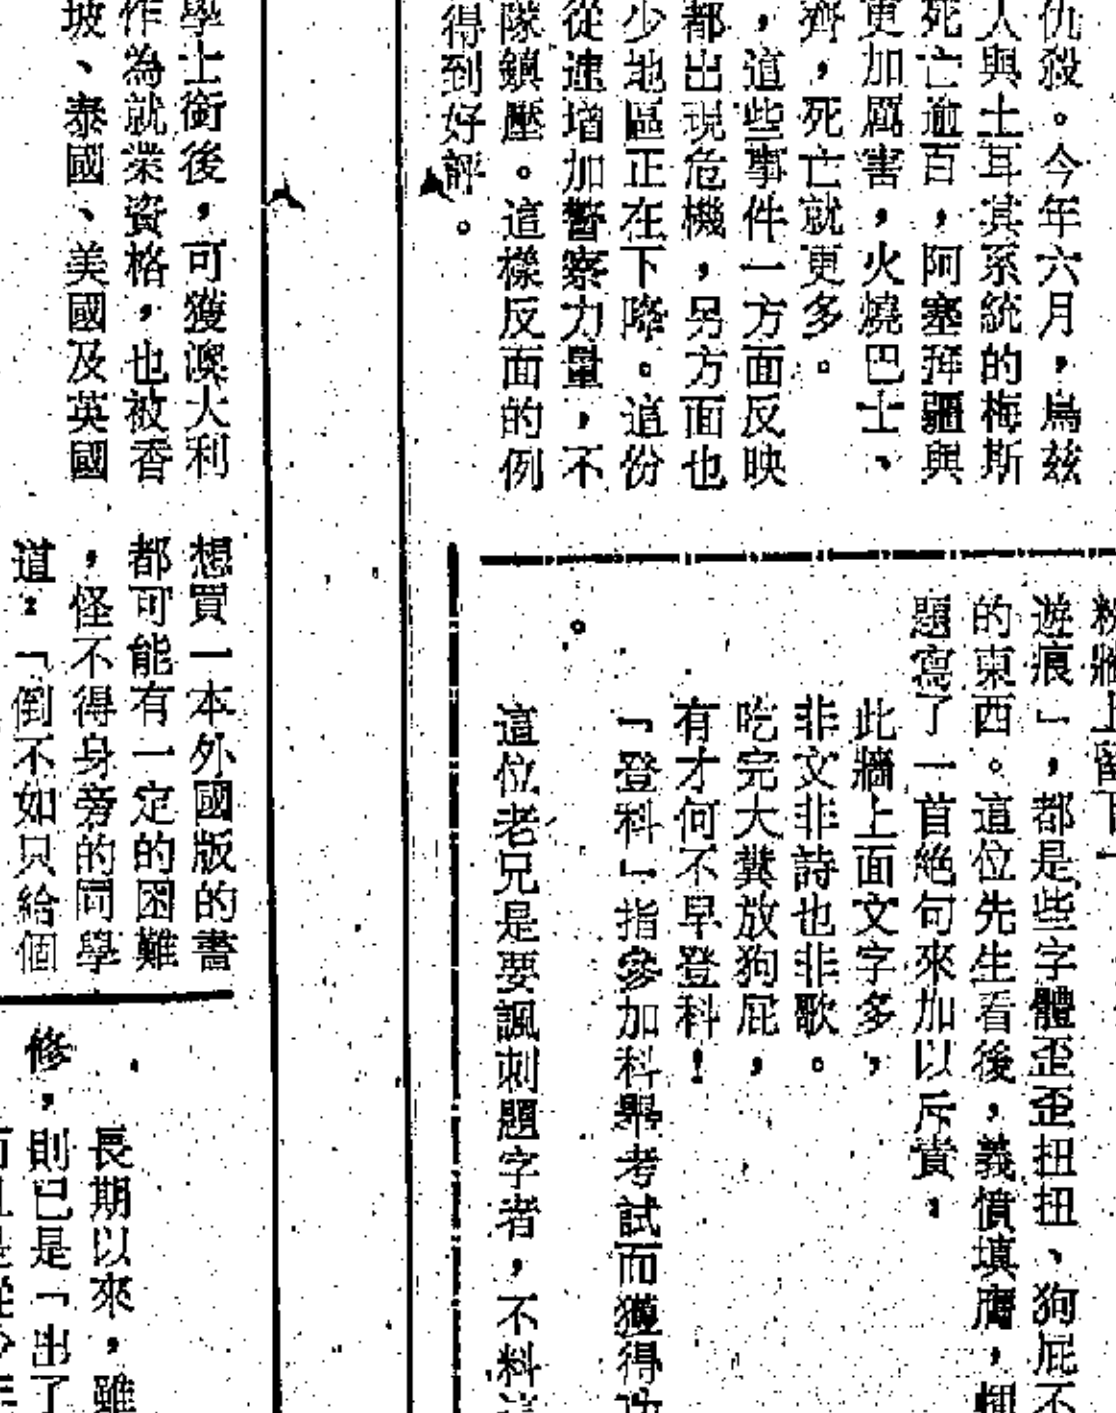 仇殺。今年六月，烏兹
人與土耳其系統的梅斯
死亡逾百，阿塞拜疆與
更加厲害，火燒巴士、
齊，死亡就更多。
，這些事件一方面反映
都出現危機，另方面也
少地區正在下降。這份
從速增加警察力量，不
隊鎮壓。這樣反面的例
得到好評。
粉牆上留下
遊痕」，都是些字體歪歪扭扭、狗屁不
的東西。這位先生看後，義憤填膺，
題寫了一首絕句來加以斥責：
此牆上面文字多，
非文非詩也非歌。
吃完大糞放狗屁，
有才何不早登科！
「登科」指參加科舉考試而獲得功
。
這位老兄是要諷刺題字者，不料這
學士銜後，可獲澳大利
作為就業資格，也被香
坡、泰國、美國及英國
想買一本外國版的書
都可能有一定的困難
，怪不得身旁的同學
道：「倒不如只給個
長期以來，雖
修，則已是「出了